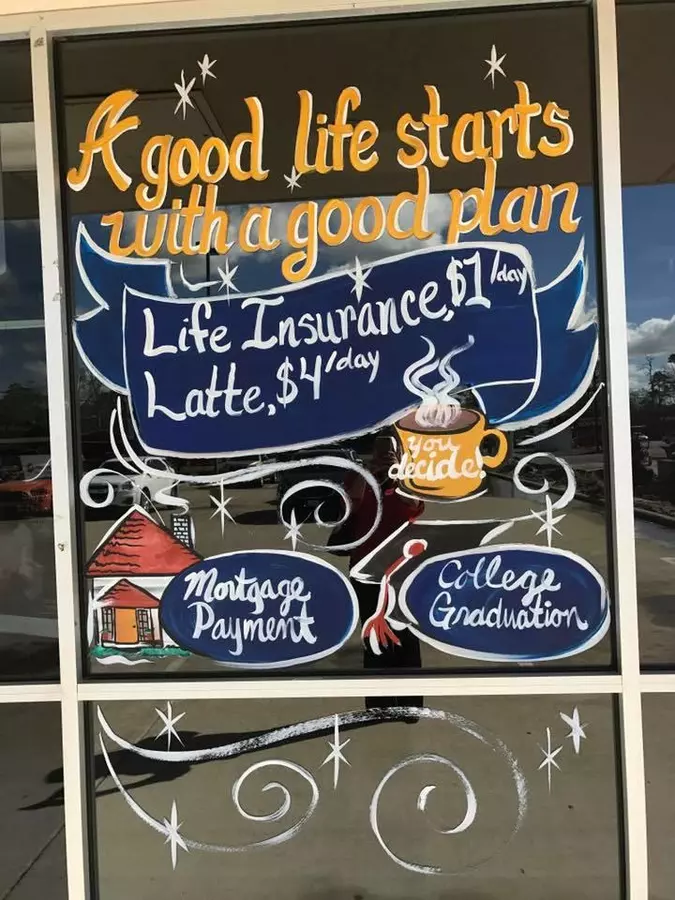 A good life starts
with a good plan
Life Insurance, $1/day
Latte, $4/day
you
decide!
Mortgage
Payment
College
Graduation